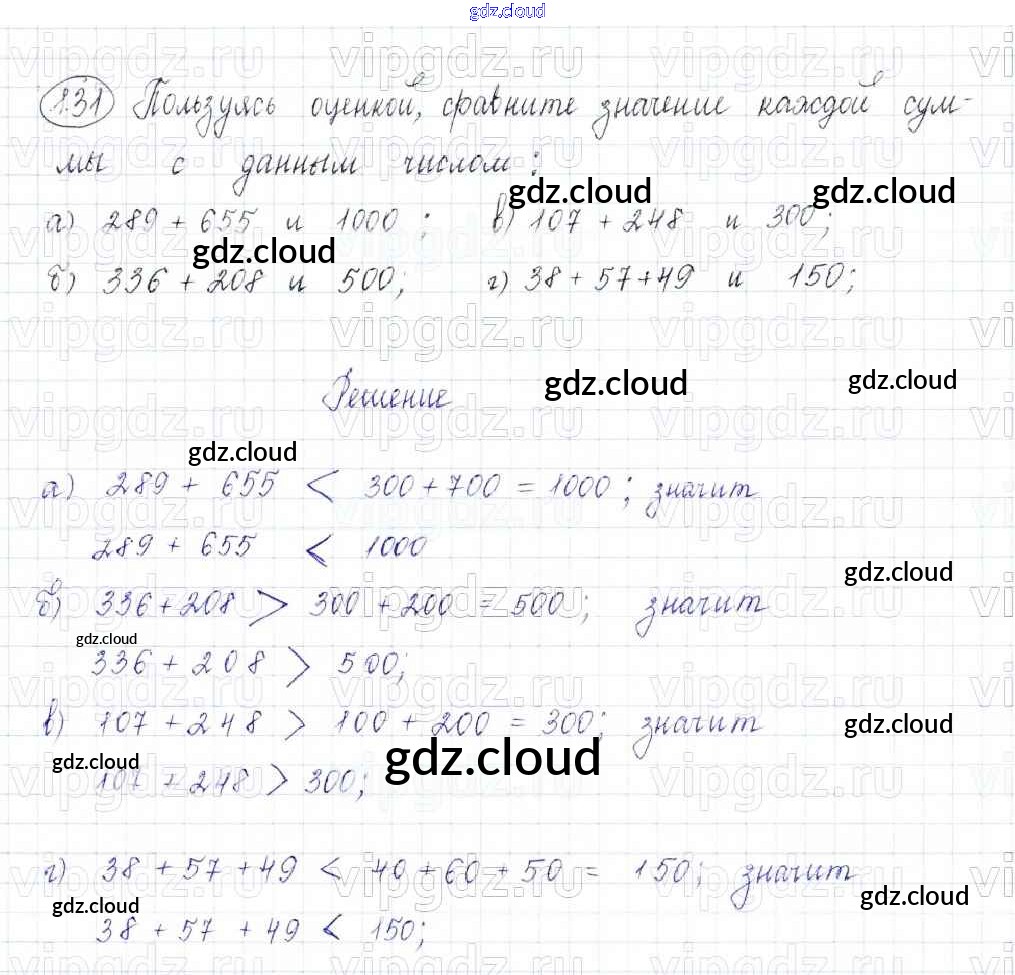 gdz.cloud
1.31 Пользуясь оценкой, сравните значение каждой сум-
мы с данным числом:
gdz.cloud gdz.cloud
а) 289 + 655 и 1000; в) 107 + 248 и 300;
gdz.cloud
б) 336 + 208 и 500; г) 38 + 57 + 49 и 150;
vipgdz.ru vipgdz.ru vipgdz.ru
Решение
gdz.cloud gdz.cloud
gdz.cloud
а) 289 + 655 < 300 + 700 = 1000; значит
289 + 655 < 1000
gdz.cloud
б) 336 + 208 > 300 + 200 = 500; значит
gdz.cloud
336 + 208 > 500;
в) 107 + 248 > 100 + 200 = 300; значит
gdz.cloud
gdz.cloud gdz.cloud
107 + 248 > 300;
г) 38 + 57 + 49 < 40 + 60 + 50 = 150; значит
gdz.cloud gdz.cloud
38 + 57 + 49 < 150;